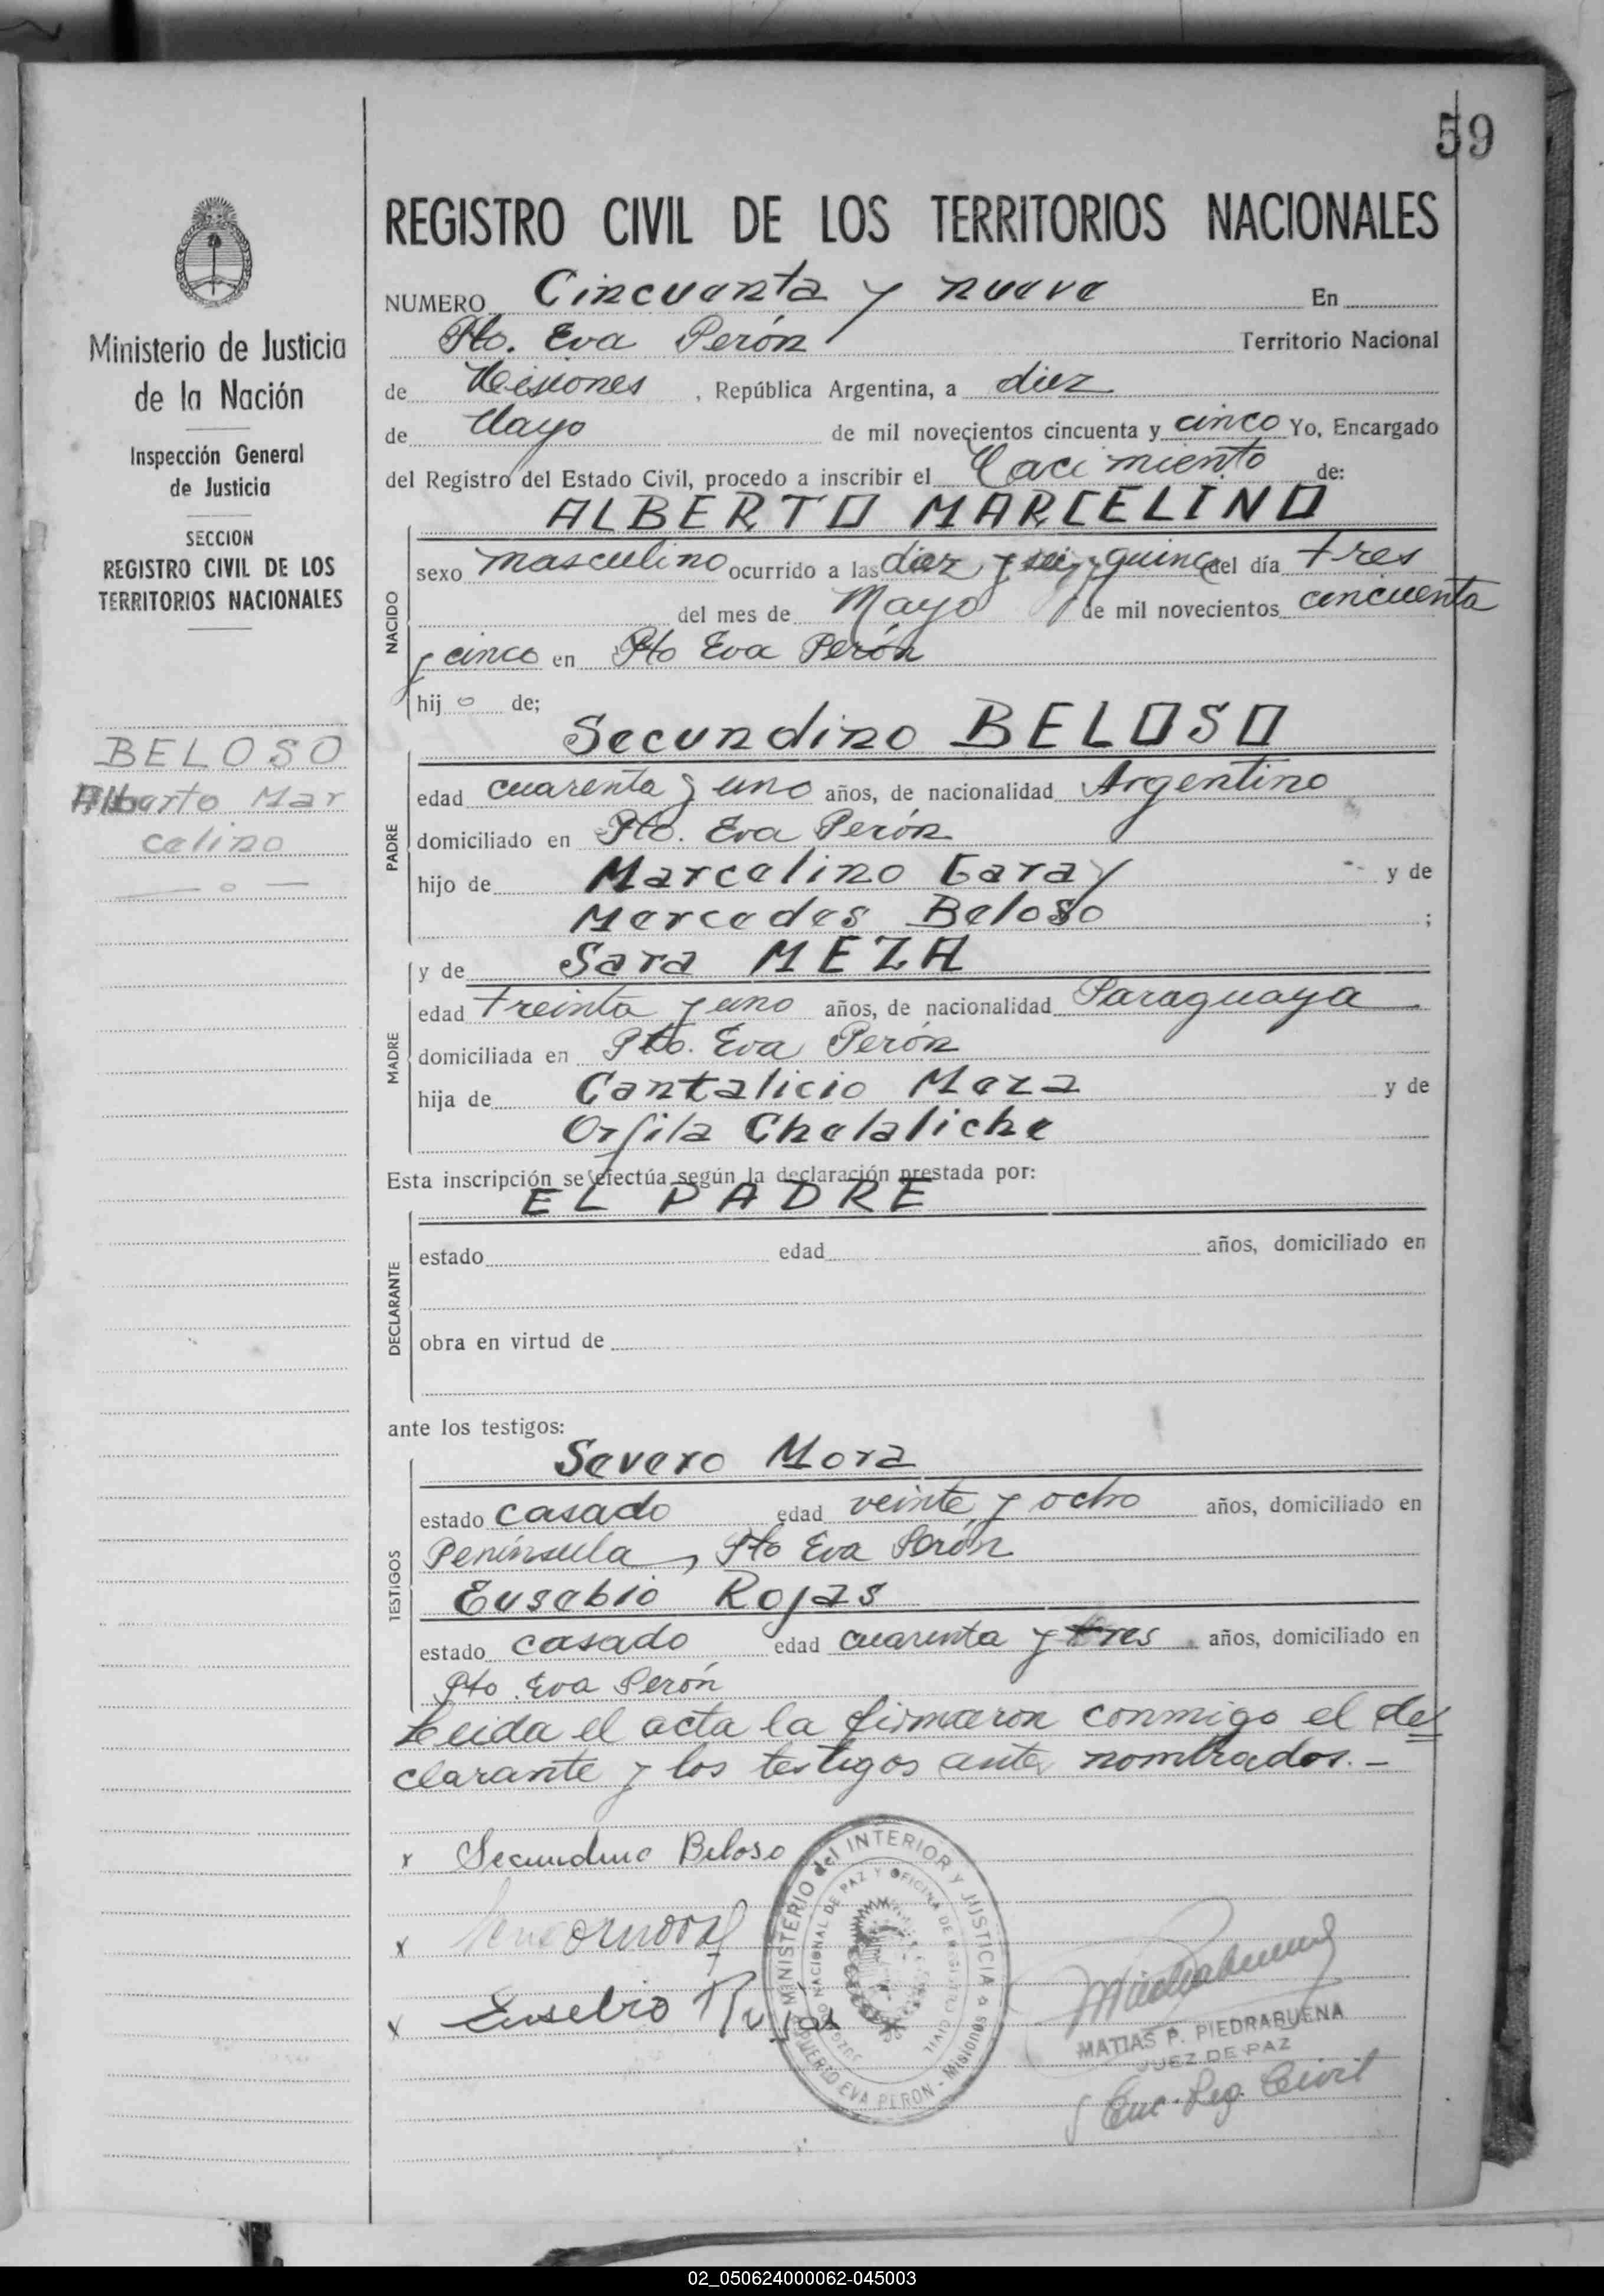 59
REGISTRO CIVIL DE LOS TERRITORIOS NACIONALES
NUMERO Cincuenta y nueve En
Pto. Eva Perón Territorio Nacional
de Misiones, República Argentina, a diez
de Mayo de mil novecientos cincuenta y cinco Yo, Encargado
del Registro del Estado Civil, procedo a inscribir el Nacimiento de:
ALBERTO MARCELINO
NACIDO
sexo masculino ocurrido a las diez y seis y quince del día tres
del mes de Mayo de mil novecientos cincuenta
y cinco en Pto Eva Perón
hijo de;
Secundino BELOSO
PADRE
edad cuarenta y uno años, de nacionalidad Argentino
domiciliado en Pto. Eva Perón
hijo de Marcelino Garay y de
Mercedes Beloso ;
MADRE
y de Sara MEZA
edad treinta y uno años, de nacionalidad Paraguaya
domiciliada en Pto. Eva Perón
hija de Cantalicio Meza y de
Orfila Chelaliche
Esta inscripción se efectúa según la declaración prestada por:
EL PADRE
DECLARANTE
estado edad años, domiciliado en
obra en virtud de
ante los testigos:
TESTIGOS
Severo Mora
estado casado edad veinte y ocho años, domiciliado en
Península, Pto Eva Perón
Eusebio Rojas
estado casado edad cuarenta y tres años, domiciliado en
Pto. Eva Perón
Leida el acta la firmaron conmigo el de
clarante y los testigos antes nombrados.-
x Secundino Beloso
x
x Eusebio Rojas
MINISTERIO del INTERIOR Y JUSTICIA
JUZGADO NACIONAL DE PAZ Y OFICINA DE REGISTRO CIVIL
PUERTO EVA PERON - Misiones
MATIAS P. PIEDRABUENA
JUEZ DE PAZ
y Enc. Reg. Civil
Ministerio de Justicia
de la Nación
Inspección General
de Justicia
SECCION
REGISTRO CIVIL DE LOS
TERRITORIOS NACIONALES
BELOSO
Alberto Mar
celino
02_050624000062-045003